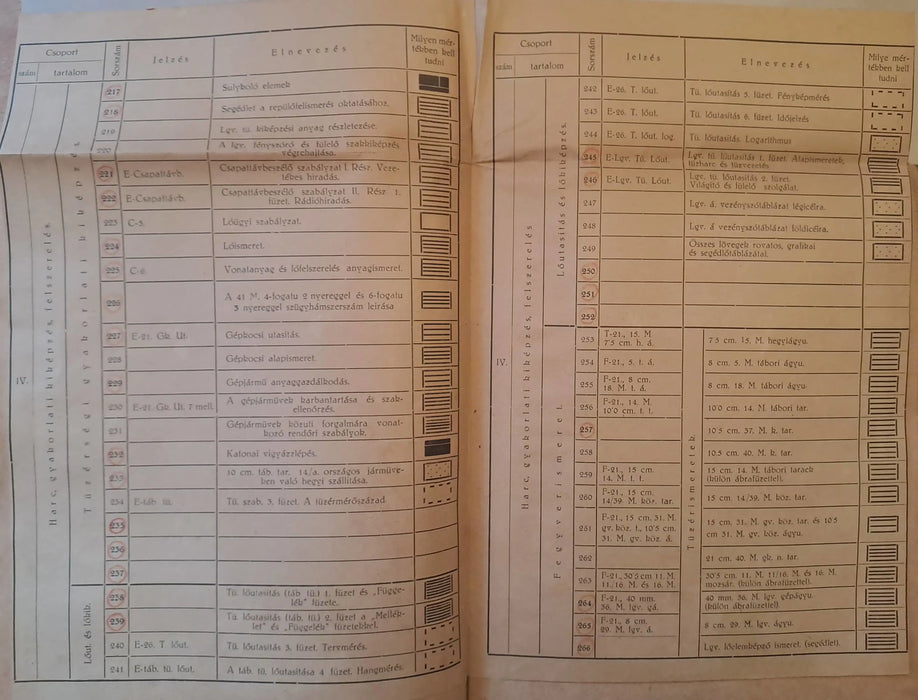 Csoport
szám
tartalom
Sorszám
Jelzés
Elnevezés
Milyen mér-
tékben kell
tudni
IV.
Harc, gyakorlati kiképzés, felszerelés.
Tüzérségi gyakorlati kiképzés.
Lőut. és lőkik.
217 Sulyboló elemek
218 Segédlet a repülőfelismerés oktatásához.
219 Lgv. tü. kiképzési anyag részletezése.
220 A lgv. fényszóró és fülelő szakkiképzés
végrehajtása.
221 E-Csapattávb. Csapattávbeszélő szabályzat I. Rész. Veze-
tébes hiradás.
222 E-Csapattávb. Csapattávbeszélő szabályzat II. Rész 1.
füzet. Rádióhiradás.
223 C-3. Lóügyi szabályzat.
224 Lóismeret.
225 C-6. Vonatanyag és lófelszerelés anyagismeret.
226 A 41 M. 4-fogatu 2 nyereggel és 6-fogatu
3 nyereggel szügyhámszerszám leirása
227 E-21. Gk. Ut. Gépkocsi utasitás.
228 Gépkocsi alapismeret.
229 Gépjármü anyaggazdálkodás.
230 E-21. Gk. Ut. 7 mell. A gépjármüvek karbantartása és szak-
ellenőrzés.
231 Gépjármüvek közuti forgalmára vonat-
kozó rendőri szabályok.
232 Katonai vigyázzlépés.
233 10 cm. táb. tar. 14/a. országos jármüve-
ken való hegyi szállitása.
234 E-táb tü. Tü. szab. 3. füzet. A tüzérmérőszázad.
235
236
237
238 Tü. lőutasitás (táb tü.) 1. füzet és „Függe-
lék" füzete.
239 Tü. lőutasitás (táb tü.) 2. füzet a „Mellék-
let" és „Függelék" füzetekkel.
240 E-26. T. lőut. Tü. lőutasitás 3. füzet. Tervmérés.
241 E-táb. tü. lőut. A táb. tü. lőutasitása 4 füzet. Hangmérés.
Csoport
szám
tartalom
Sorszám
Jelzés
Elnevezés
Milye mér-
tékben kell
tudni
IV.
Harc, gyakorlati kiképzés, felszerelés
Lőutasitás és lőkiképzés.
Fegyverismeret.
Tüzérismeretek.
242 E-26. T. lőut. Tü. lőutasitás 5. füzet. Fényképmérés
243 E-26. T. lőut. Tü. lőutasitás 6. füzet. Időjelzés
244 E-26. T. lőut. log. Tü. lőutasitás. Logarithmus
245 E-Lgv. Tü. Lőut. Lgv. tü. lőutasitás 1. füzet. Alapismeretek,
tüzharc és tüzvezetés.
246 E-Lgv. Tü. Lőut. Lgv. tü. lőutasitás 2. füzet.
Világitó és fülelő szolgálat.
247 Lgv. á. vezényszótáblázat légicélra.
248 Lgv. á vezényszótáblázat földicélra.
249 Összes lövegek rovatos, grafikai
és segédlőtáblázatai.
250
251
252
253 T-21., 15. M.
7'5 cm. h. á. 7'5 cm. 15. M. hegyiágyu.
254 F-21., 5. t. á. 8 cm. 5. M. tábori ágyu.
255 F-21., 8 cm.
18. M. t. á. 8 cm. 18. M. tábori ágyu.
256 F-21., 14. M.
10'0 cm. t. t. 10'0 cm. 14. M. tábori tar.
257 10'5 cm. 37. M. k. tar.
258 10.5 cm. 40. M. k. tar.
259 F-21., 15 cm.
14. M. t. t. 15 cm. 14. M. tábori tarack
(külön ábrafüzettel).
260 F-21., 15 cm.
14/39. M. köz. tar. 15 cm. 14/39. M. köz. tar.
261 F-21., 15 cm. 31. M.
gv. köz. t., 10'5 cm.
31. M. gv. köz. á. 15 cm. 31. M. gv. köz. tar. és 10'5
cm 31. M. gv. köz. ágyu.
262 21 cm. 40. M. gk. n. tar.
263 F-21., 30'5 cm 11. M.
11./16. M. és 16. M. 30'5 cm. 11. M. 11/16. M. és 16. M.
mozsár. (külön ábrafüzettel).
264 F-21., 40 mm.
36. M. lgv. gá. 40 mm. 36. M. lgv. gépágyu.
(külön ábrafüzettel).
265 F-21., 8 cm.
29. M. lgv. á. 8 cm. 29. M. lgv. ágyu.
266 Lgv. lőelemképző ismeret. (segédlet).